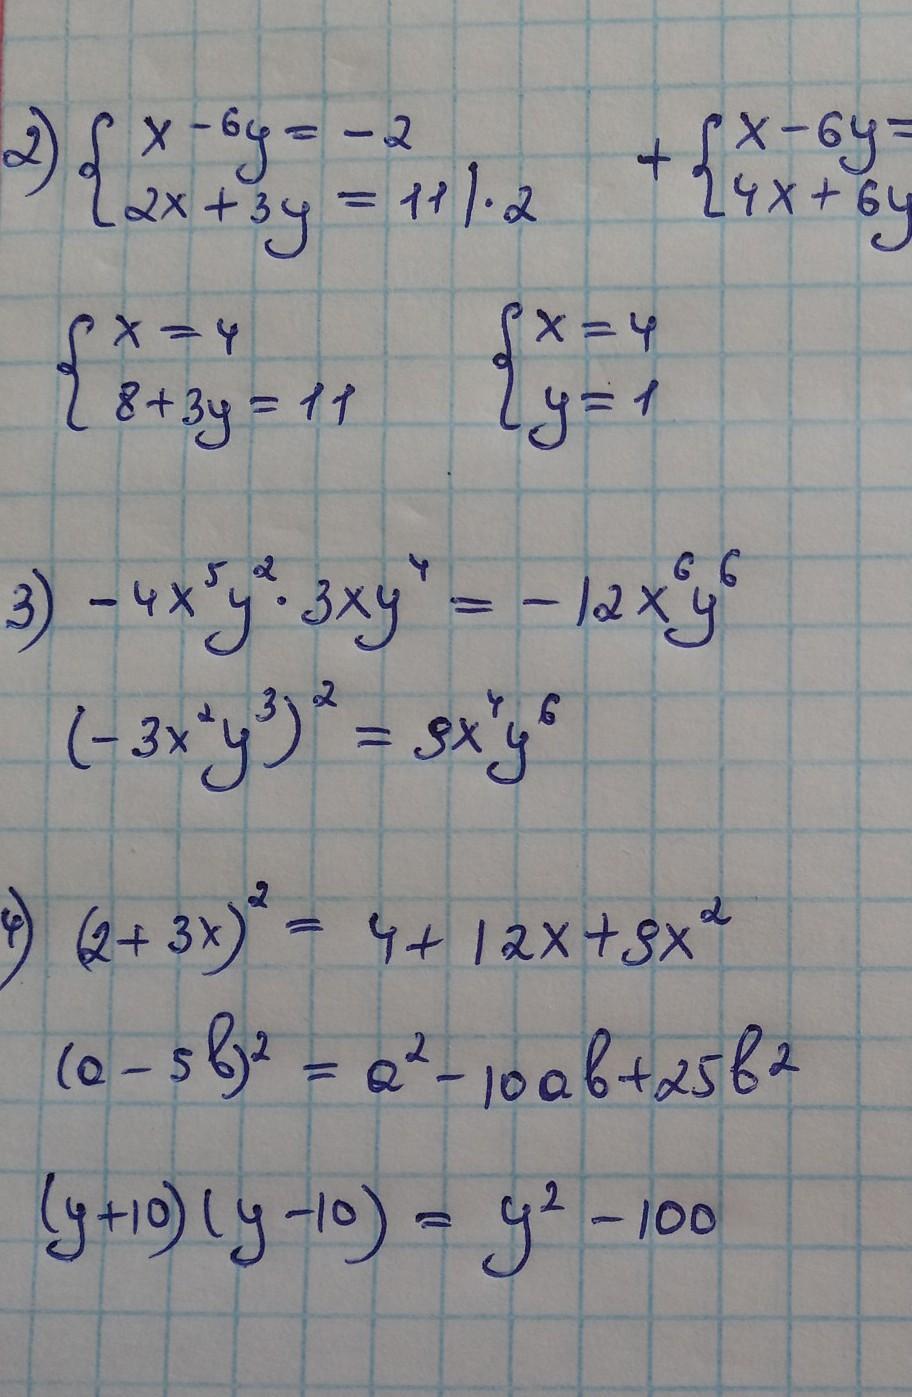 2) { x - 6y = -2 + { x - 6y =
2x + 3y = 11 | · 2 4x + 6y
{ x = 4 { x = 4
8 + 3y = 11 y = 1
3) -4x⁵y² · 3xy⁴ = -12x⁶y⁶
(-3x²y³)² = 9x⁴y⁶
4) (2 + 3x)² = 4 + 12x + 9x²
(a - 5b)² = a² - 10ab + 25b²
(y + 10)(y - 10) = y² - 100